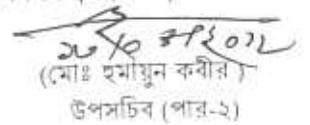 (মোঃ হুমায়ুন কবীর)
উপসচিব (পার-২)